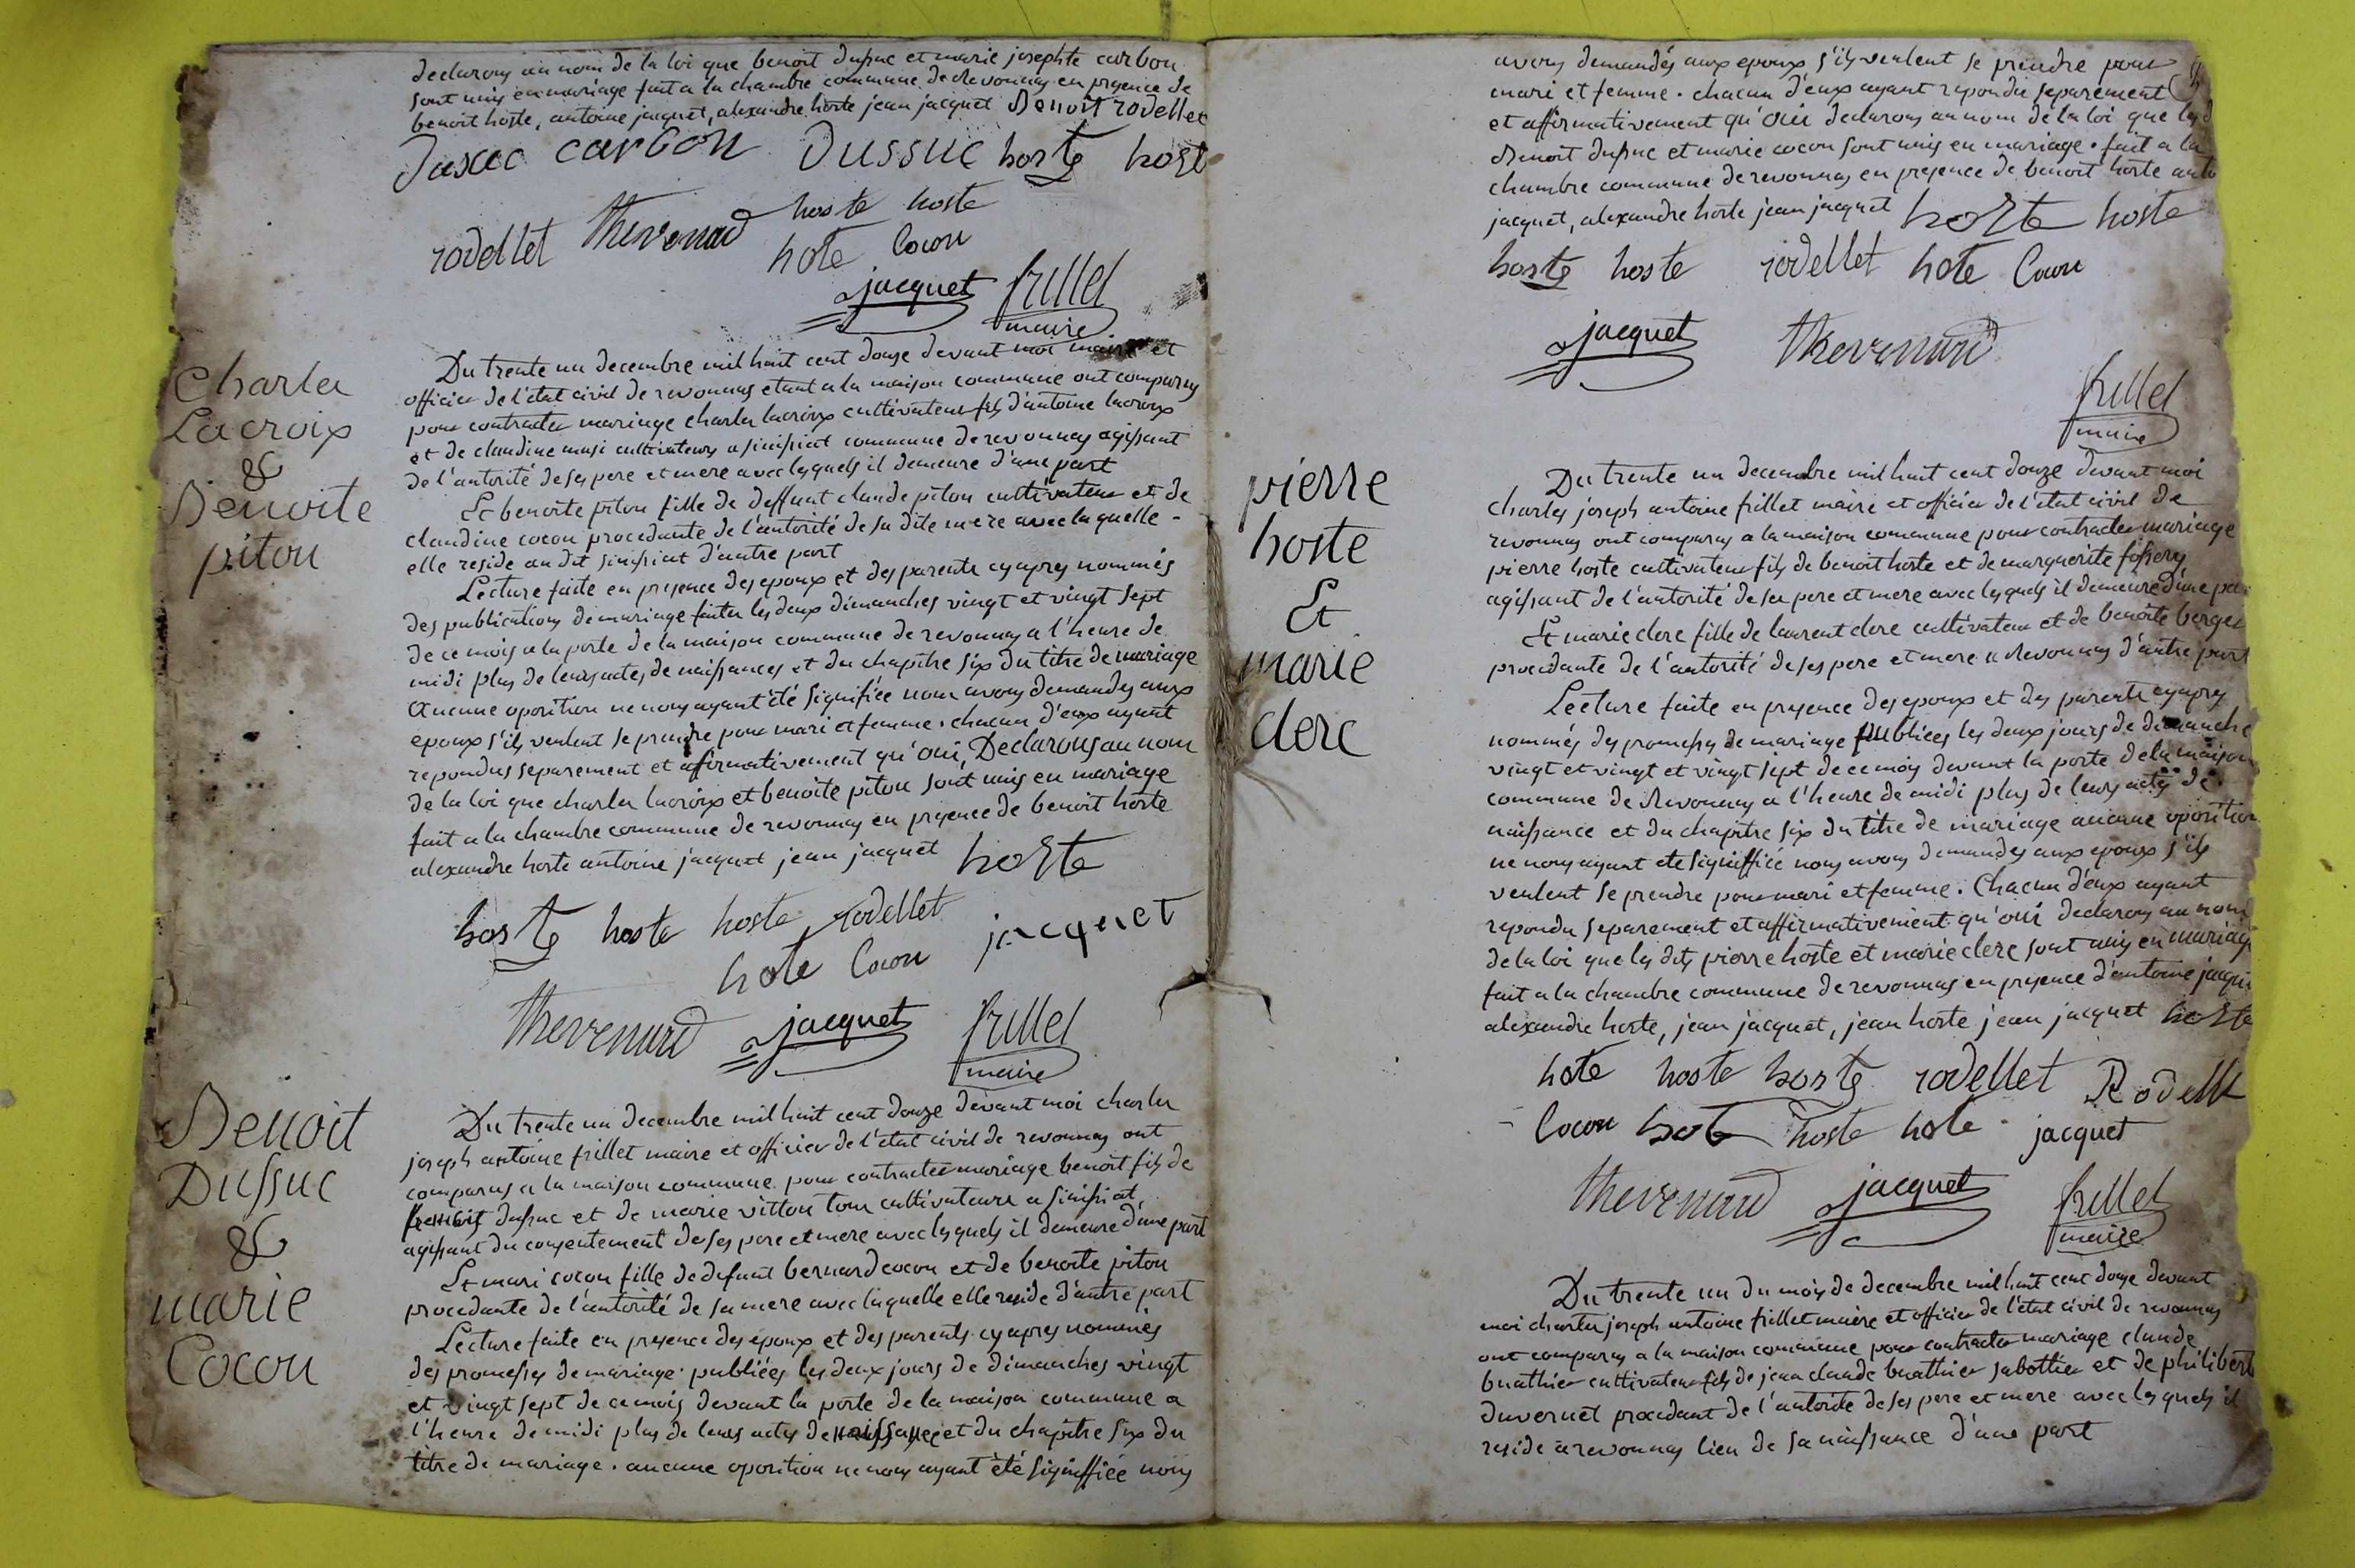 declarons au nom de la loi que benoit dussuc et marie josephte carbon
sont unis en mariage fait a la chambre commune de Revonnas en presence de
benoit hoste, antoine jacquet, alexandre hoste jean jacquet Benoit rodellet
Dusuc carbon Dussuc hoste hoste
rodellet thevenard hoste hoste
hote Cocon
jacquet frillet
maire
Charles
Lacroix
&
Benoite
piton
Du trente un decembre mil huit cent douze devant moi maire et
officier de l'état civil de revonnas etant a la maison commune ont comparus
pour contracter mariage charles lacroix cultivateur fils d'antoine lacroix
et de claudine musi cultivateurs a simfiat commune de revonnas agissant
de l'autorité de ses pere et mere avec lesquels il demeure d'une part
Et benoite piton fille de deffunt claude piton cultivateur et de
claudine cocon procedante de l'autorité de sa dite mere avec laquelle -
elle reside au dit simfiat d'autre part
Lecture faite en presence des epoux et des parents cy apres nommés
des publications de mariage faites les deux dimanches vingt et vingt sept
de ce mois a la porte de la maison commune de revonnas a l'heure de
midi plus de leurs actes de naissances et du chapitre six du titre de mariage
Aucune oposition ne nous ayant été signifiée nous avons demandés aux
epoux s'ils veulent se prendre pour mari et femme. chacun d'eux ayant
repondus separement et afirmativement qu'oui, Declarons au nom
de la loi que charles lacroix et benoite piton sont unis en mariage
fait a la chambre commune de revonnas en presence de benoit hoste
alexandre hoste antoine jacquet jean jacquet hoste
hoste hoste hoste rodellet
hote Cocon jacquet
thevenard jacquet frillet
maire
Benoit
Dussuc
&
marie
Cocon
Du trente un decembre mil huit cent douze devant moi charles
joseph antoine frillet maire et officier de l'etat civil de revonnas ont
comparus a la maison commune pour contracter mariage benoit fils de
dussuc et de marie vitton tous cultivateurs a simfiat,
agissant du consentement de ses pere et mere avec lesquels il demeure d'une part
Et mari cocon fille de defunt bernard cocon et de benoite piton
procedante de l'autorité de sa mere avec laquelle elle reside d'autre part
Lecture faite en presence des epoux et des parents cy apres nommés
des promesses de mariage publiées les deux jours de dimanches vingt
et vingt sept de ce mois devant la porte de la maison commune a
l'heure de midi plus de leurs actes de naissance et du chapitre six du
titre de mariage. aucune oposition ne nous ayant été signiffiée nous
avons demandés aux epoux s'ils veulent se prendre pour
mari et femme. chacun d'eux ayant repondu separement
et affirmativement qu'oui declarons au nom de la loi que lesd
Benoit dussuc et marie cocon sont unis en mariage. fait a la
chambre commune de revonnas en presence de benoit hoste anto
jacquet, alexandre hoste jean jacquet hoste hoste
hoste hoste rodellet hote Cocon
jacquet thevenard
frillet
maire
pierre
hoste
Et
marie
clerc
Du trente un decembre mil huit cent douze devant moi
charles joseph antoine frillet maire et officier de l'état civil de
revonnas ont comparus a la maison commune pour contracter mariage
pierre hoste cultivateur fils de benoit hoste et de marguerite
agissant de l'autorité de ses pere et mere avec lesquels il demeure d'une par
Et marie clerc fille de laurent clerc cultivateur et de benoite berger
procedante de l'autorité de ses pere et mere a Revonnas d'autre part
Lecture faite en presence des epoux et des parents cy apres
nommés des promesses de mariage publiées les deux jours de dimanche
vingt et vingt et vingt sept de ce mois devant la porte de la maison
commune de Revonnas a l'heure de midi plus de leurs actes de
naissance et du chapitre six du titre de mariage aucune oposition
ne nous ayant ete signiffiée nous avons demandés aux epoux s'ils
veulent se prendre pour mari et femme. Chacun d'eux ayant
repondu separement et affirmativement qu'oui declarons au nom
de la loi que les dits pierre hoste et marie clerc sont unis en mariage
fait a la chambre commune de revonnas en presence d'antoine jacqu
alexandre hoste, jean jacquet, jean hoste jean jacquet hoste
hote hoste hoste rodellet Rodellet
Cocon hote hoste hote jacquet
thevenard jacquet frillet
maire
Du trente un du mois de decembre mil huit cent douze devant
moi charles joseph antoine frillet maire et officier de l'état civil de revonnas
ont comparus a la maison commune pour contracter mariage claude
buathier cultivateur fils de jean claude buathier sabottier et de philiberte
duvernet procedant de l'autorité de ses pere et mere avec lesquels il
reside a revonnas lieu de sa naissance d'une part